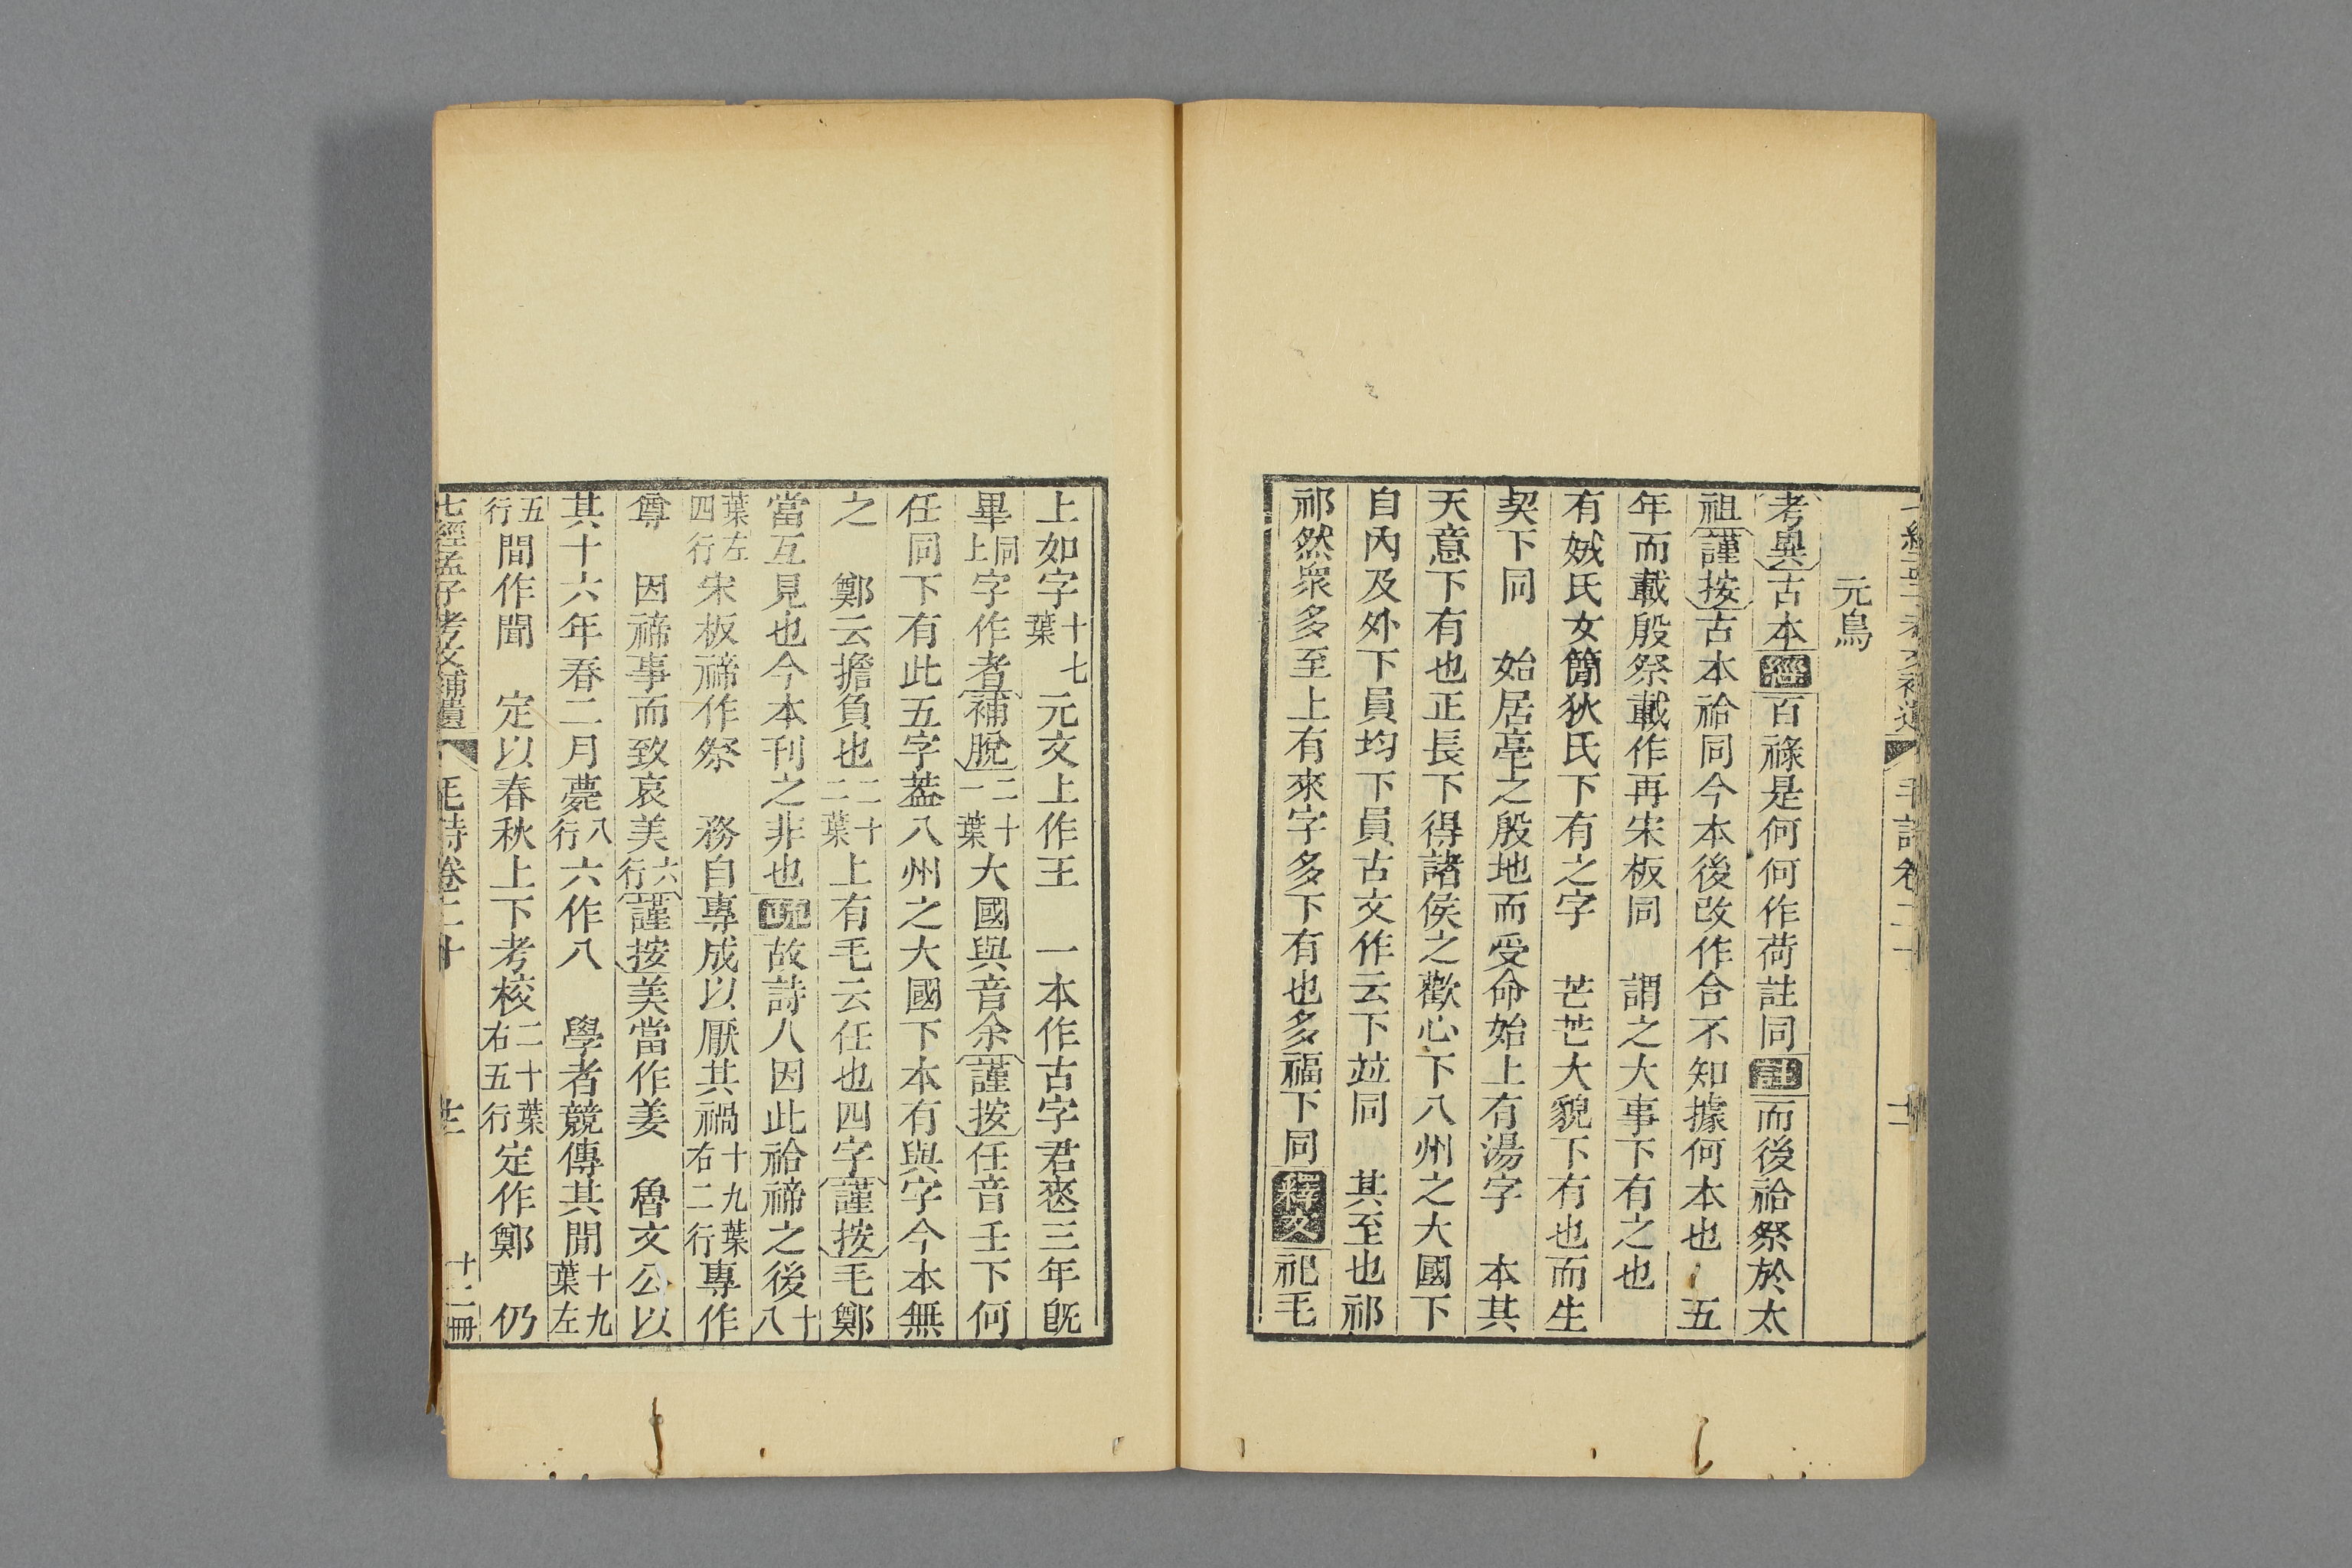 元鳥
考異古本經百祿是何何作荷註同註而後祫祭於太
祖謹按古本祫同今本後改作合不知據何本也　五
年而載殷祭載作再宋板同　謂之大事下有之也
有娀氏女簡狄氏下有之字　芒芒大貌下有也而生
契下同　始居亳之殷地而受命始上有湯字　本其
天意下有也正長下得諸侯之歡心下八州之大國下
自內及外下員均下員古文作云下並同　其至也祁
祁然衆多至上有來字多下有也多福下同釋文祀毛
上如字十七葉元文上作王　一本作古字君喪三年旣
畢同上字作者補脫二十一葉大國與音余謹按任音壬下何
任同下有此五字葢八州之大國下本有與字今本無
之　鄭云擔負也二十二葉上有毛云任也四字謹按毛鄭
當互見也今本刊之非也疏故詩人因此祫禘之後十八
葉左四行宋板禘作祭　務自專成以厭其禍十九葉右二行專作
尊　因禘事而致哀美六行謹按美當作姜　魯文公以
其十六年春二月薨八行六作八　學者競傳其閒十九葉左
五行間作聞　定以春秋上下考校二十葉右五行定作鄭　仍
七經孟子考文補遺　毛詩卷二十　十二冊